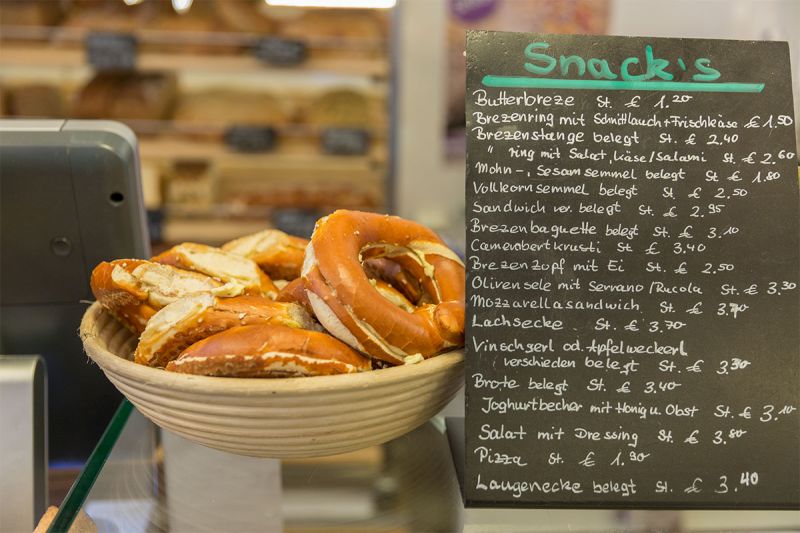 Snack's
Butterbreze St. € 1.20
Brezenring mit Schnittlauch+Frischkäse € 1.50
Brezenstange belegt St. € 2.40
" ring mit Salat, Käse/Salami St. € 2.60
Mohn-, Sesamsemmel belegt St. € 1.80
Vollkornsemmel belegt St. € 2.50
Sandwich ver. belegt St. € 2.95
Brezenbaguette belegt St. € 3.10
Camembertkrusti St. € 3.40
Brezenzopf mit Ei St. € 2.50
Olivensele mit Serrano/Rucola St. € 3.30
Mozzarellasandwich St. € 3.70
Lachsecke St. € 3.70
Vinschgerl od. Apfelweckerl
verschieden belegt St. € 3.30
Brote belegt St. € 3.40
Joghurtbecher mit Honig u. Obst St. € 3.10
Salat mit Dressing St. € 3.80
Pizza St. € 1.90
Laugenecke belegt St. € 3.40